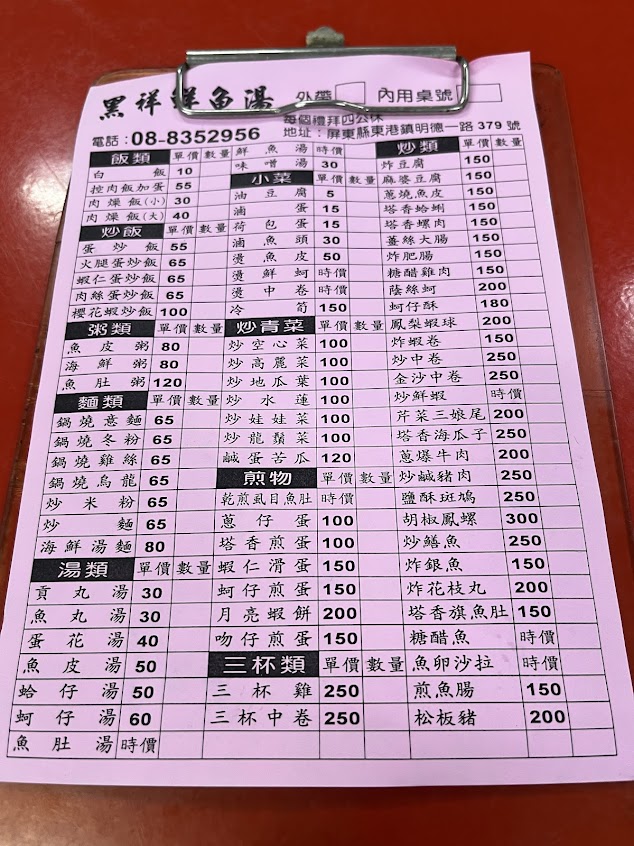 黑祥鮮魚湯 外帶 內用桌號
每個禮拜四公休
電話:08-8352956 地址:屏東縣東港鎮明德一路379號
飯類 單價 數量
白飯 10
控肉飯加蛋 55
肉燥飯(小) 30
肉燥飯(大) 40
炒飯 單價 數量
蛋炒飯 55
火腿蛋炒飯 65
蝦仁蛋炒飯 65
肉絲蛋炒飯 65
櫻花蝦炒飯 100
粥類 單價 數量
魚皮粥 80
海鮮粥 80
魚肚粥 120
麵類 單價 數量
鍋燒意麵 65
鍋燒冬粉 65
鍋燒雞絲 65
鍋燒烏龍 65
炒米粉 65
炒麵 65
海鮮湯麵 80
湯類 單價 數量
貢丸湯 30
魚丸湯 30
蛋花湯 40
魚皮湯 50
蛤仔湯 50
蚵仔湯 60
魚肚湯 時價
鮮魚湯 時價
味噌湯 30
小菜 單價 數量
油豆腐 5
滷蛋 15
荷包蛋 15
滷魚頭 30
燙魚皮 50
燙鮮蚵 時價
燙中卷 時價
冷筍 150
炒青菜 單價 數量
炒空心菜 100
炒高麗菜 100
炒地瓜葉 100
炒水蓮 100
炒娃娃菜 100
炒龍鬚菜 100
鹹蛋苦瓜 120
煎物 單價 數量
乾煎虱目魚肚 時價
蔥仔蛋 100
塔香煎蛋 100
蝦仁滑蛋 150
蚵仔煎蛋 150
月亮蝦餅 200
吻仔煎蛋 150
三杯類 單價 數量
三杯雞 250
三杯中卷 250
炒類 單價 數量
炸豆腐 150
麻婆豆腐 150
蔥燒魚皮 150
塔香蛤蜊 150
塔香螺肉 150
薑絲大腸 150
炸肥腸 150
糖醋雞肉 150
蔭絲蚵 200
蚵仔酥 180
鳳梨蝦球 200
炸蝦卷 150
炒中卷 250
金沙中卷 250
炒鮮蝦 時價
芹菜三娘尾 200
塔香海瓜子 250
蔥爆牛肉 200
炒鹹豬肉 250
鹽酥斑鳩 250
胡椒鳳螺 300
炒鱔魚 250
炸銀魚 150
炸花枝丸 200
塔香旗魚肚 150
糖醋魚 時價
魚卵沙拉 時價
煎魚腸 150
松板豬 200